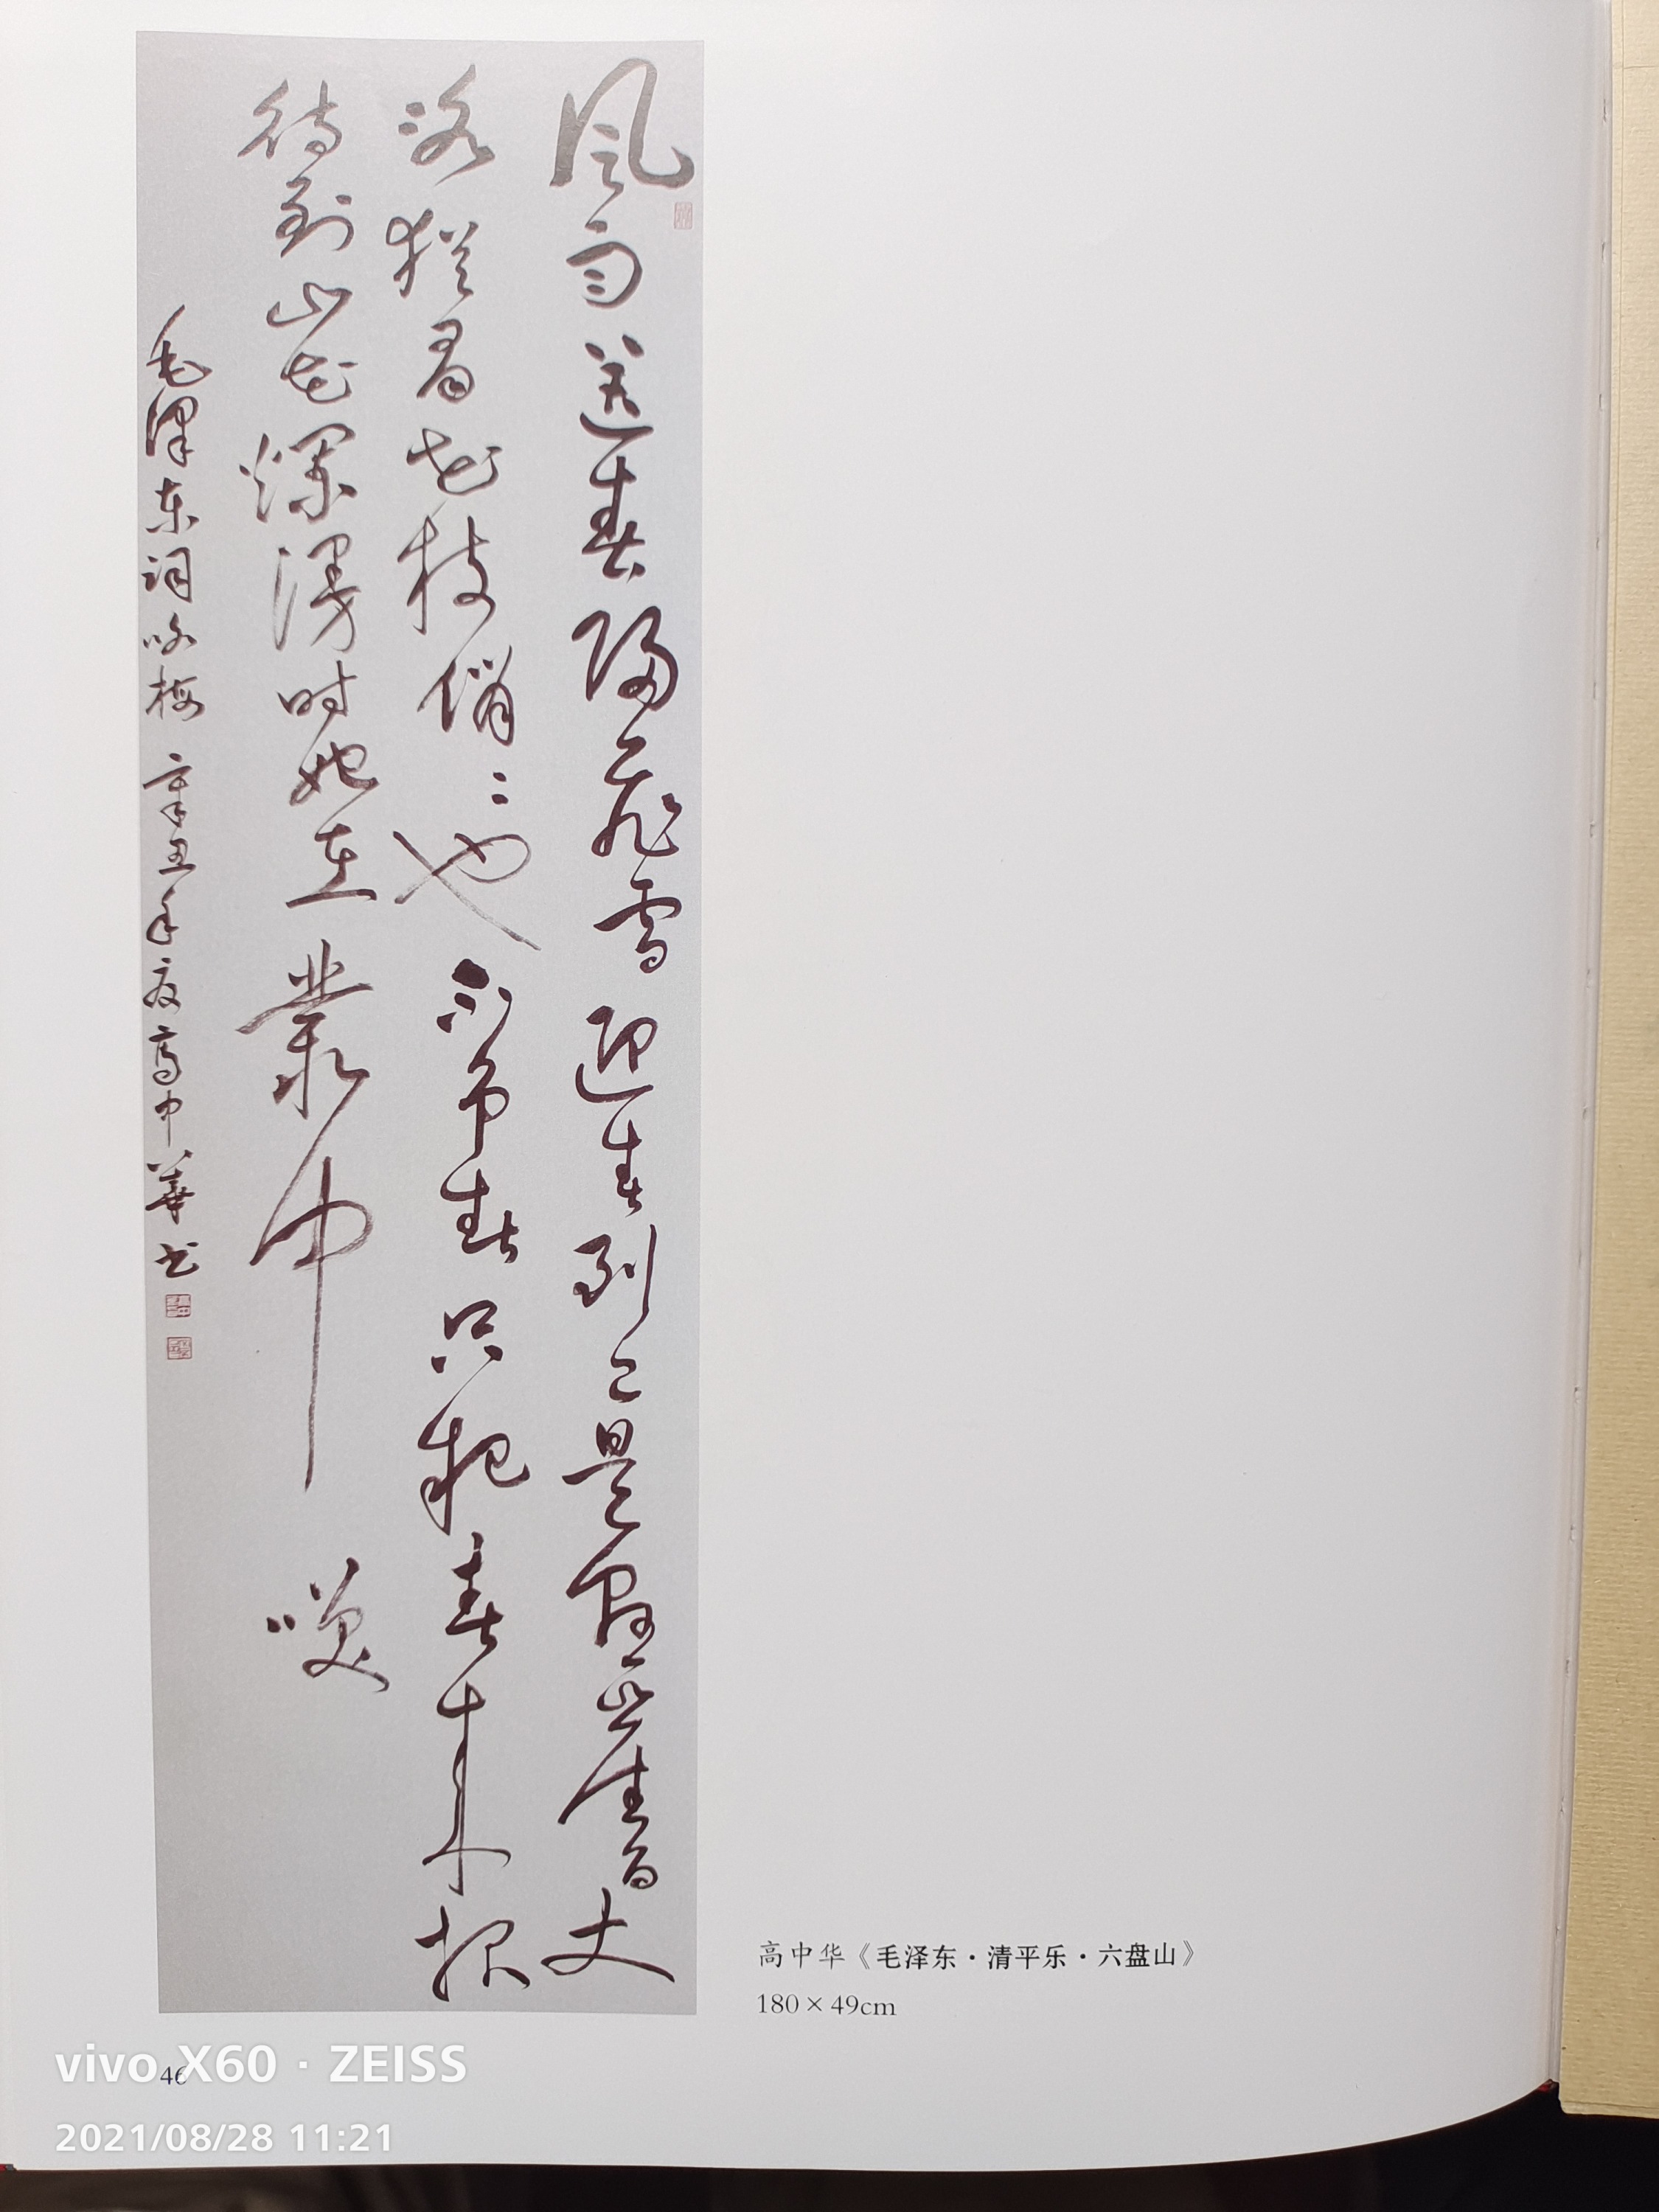 風雨送春歸飛雪迎春到已是懸崖百丈
冰猶有花枝俏〻也不争春只把春来报
待到山花爛漫时她在叢中笑
毛澤东词咏梅 辛丑年夏高中華书
高中华《毛泽东·清平乐·六盘山》
180×49cm
46
vivo X60 · ZEISS
2021/08/28 11:21